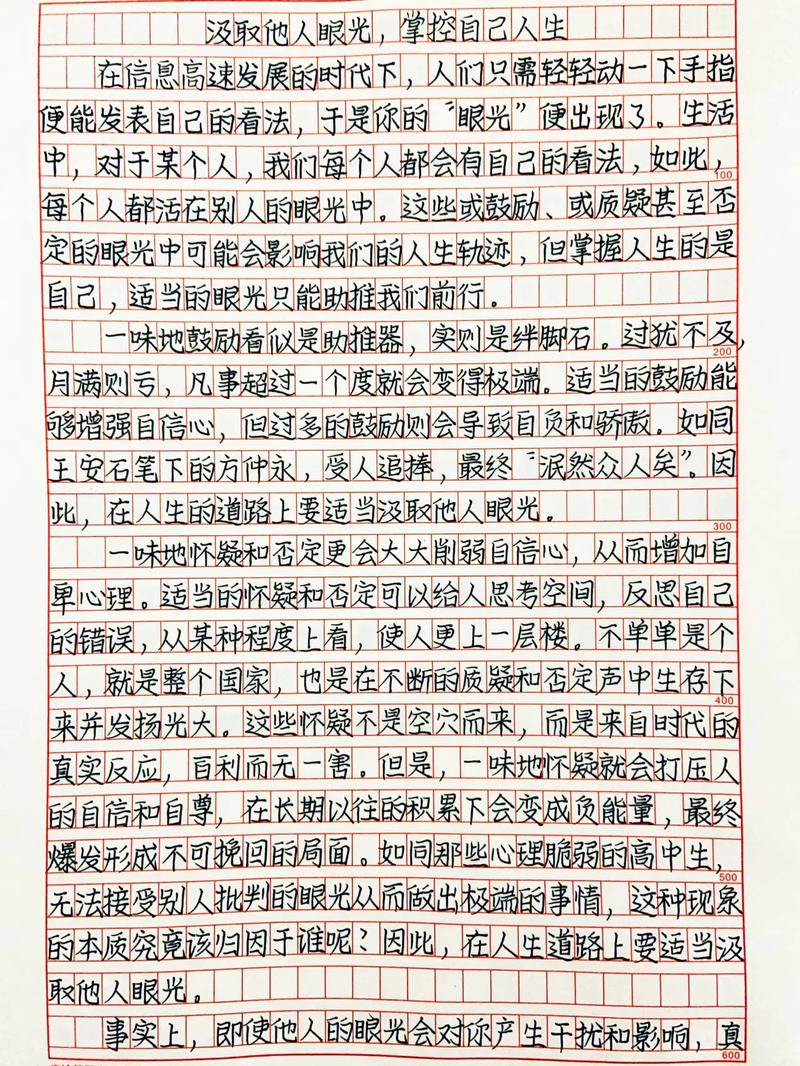 汲取他人眼光，掌控自己人生
在信息高速发展的时代下，人们只需轻轻动一下手指
便能发表自己的看法，于是你的“眼光”便出现了。生活
中，对于某个人，我们每个人都会有自己的看法，如此，
100
每个人都活在别人的眼光中。这些或鼓励、或质疑甚至否
定的眼光中可能会影响我们的人生轨迹，但掌握人生的是
自己，适当的眼光只能助推我们前行。
一味地鼓励看似是助推器，实则是绊脚石。过犹不及，
200
月满则亏，凡事超过一个度就会变得极端。适当的鼓励能
够增强自信心，但过多的鼓励则会导致自负和骄傲。如同
王安石笔下的方仲永，受人追捧，最终“泯然众人矣”。因
此，在人生的道路上要适当汲取他人眼光。
300
一味地怀疑和否定更会大大削弱自信心，从而增加自
卑心理。适当的怀疑和否定可以给人思考空间，反思自己
的错误，从某种程度上看，使人更上一层楼。不单单是个
人，就是整个国家，也是在不断的质疑和否定声中生存下
400
来并发扬光大。这些怀疑不是空穴而来，而是来自时代的
真实反应，百利而无一害。但是，一味地怀疑就会打压人
的自信和自尊，在长期以往的积累下会变成负能量，最终
爆发形成不可挽回的局面。如同那些心理脆弱的高中生，
500
无法接受别人批判的眼光从而做出极端的事情，这种现象
的本质究竟该归因于谁呢？因此，在人生道路上要适当汲
取他人眼光。
事实上，即使他人的眼光会对你产生干扰和影响，真
600